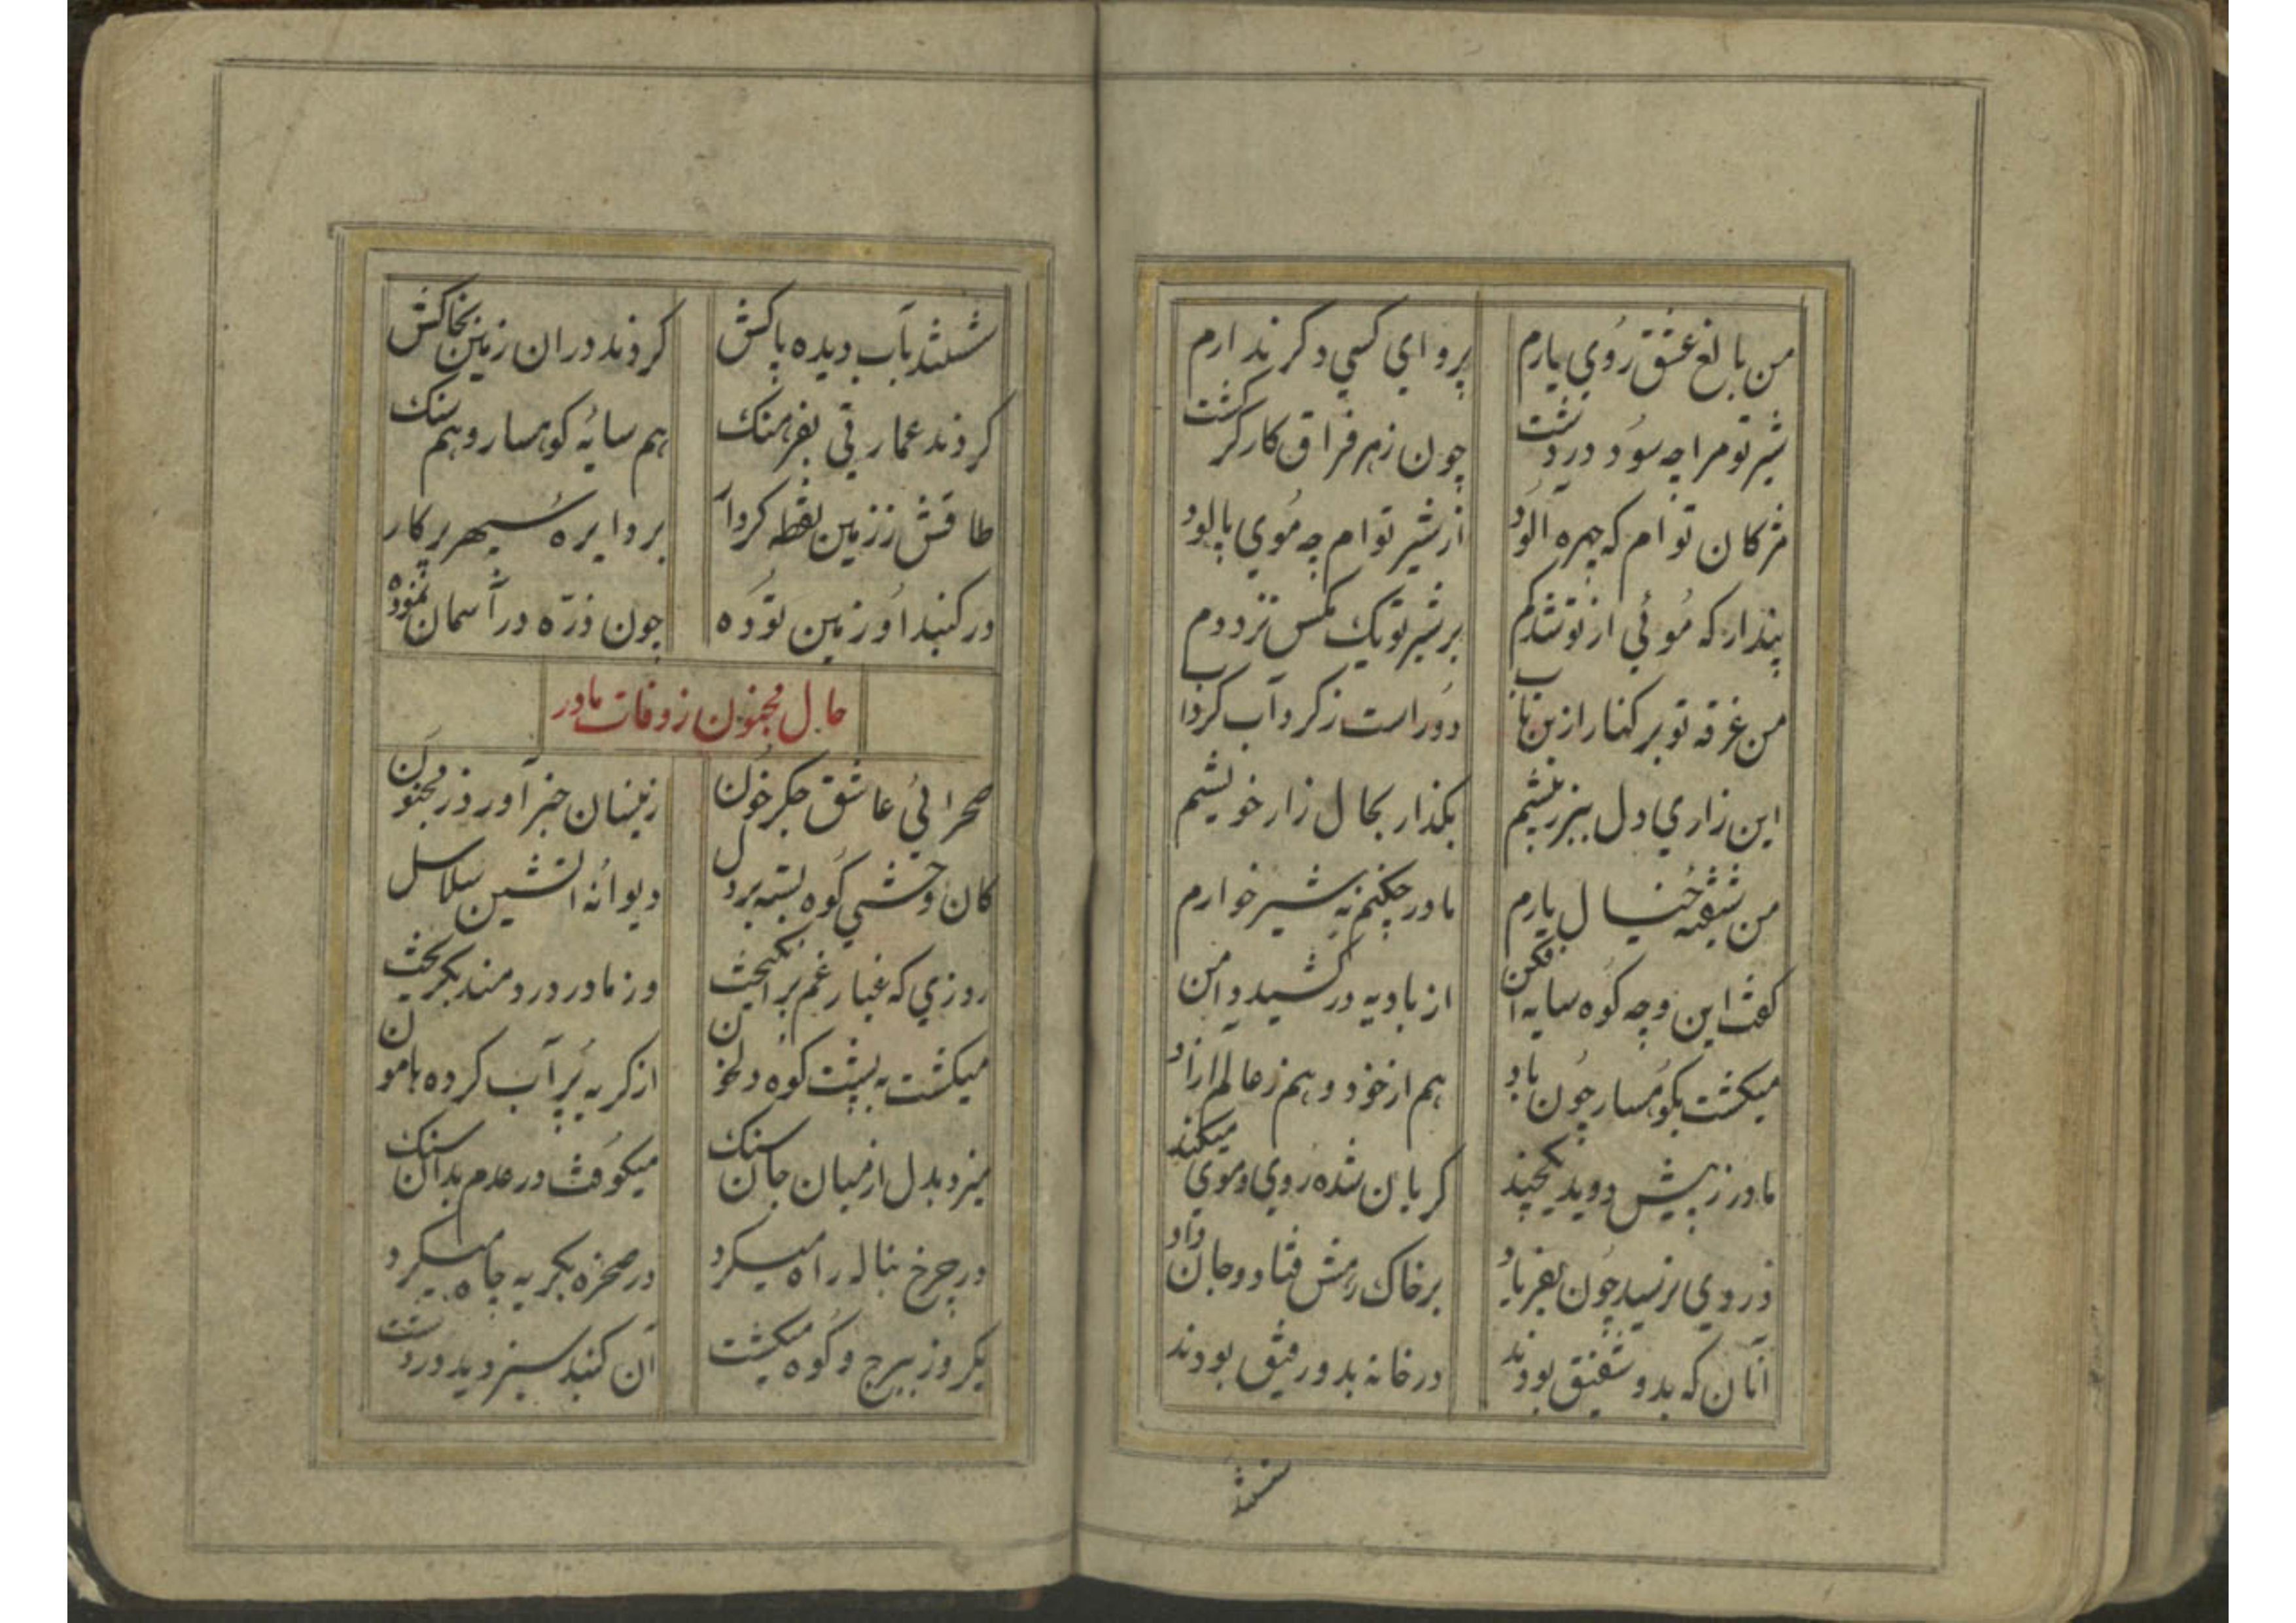 من بالغ عشق روی یارم پروای کسی دکر ندارم
شیر تو مرا چه سود در دشت چون زهر فراق کارکر کشت
مژکان توام که چهره آلود از شیر توام چه موی پالود
پندار که موئی از تو شد کم بر شیر تو یک مکس نزد دم
من غرقه تو بر کنار ازین تاب دور است ز کرد آب کرداب
این زاری دل ببر ز پیشم بکذار بحال زار خویشم
من شیفته خیال یارم مادر چکنم نه شیر خوارم
کفت این و چه کوه سایه افکن از بادیه در کشید دامن
میکشت بکوهسار چون باد هم از خود و هم ز عالم ازاد
مادر ز پیش دوید یکچند کریان شده روی و موی میکند
در وی نرسید چون بفریاد بر خاک رهش فتاد و جان داد
آنان که بدو شفیق بودند در خانه بدو رفیق بودند
شستند
شستند بآب دیده پاکش کردند دران زمین بخاکش
کردند عمارتی بفرهنک هم سایه کوهسار و هم سنک
طاقش ز زمین نقطه کردار بر دایره سپهر پرکار
در کنبد او زمین توده چون ذره در آسمان نموده
حال مجنون ز وفات مادر
صحرائی عاشق جکر خون زینسان خبر آورد ز مجنون
کان وحشی کوه بسته بر دل دیوانه آتشین سلاسل
روزی که غبار غم برانکیخت وز مادر دردمند بکریخت
میکشت به پشت کوه دلخون از کریه پر آب کرده هامون
میزد بدل از میان جان سنک میکوفت در عدم بدان سنک
در چرخ بناله راه میکرد در صخره بکریه چاه میکرد
یکروز ببرج و کوه میکشت آن کنبد سبز دید در دشت